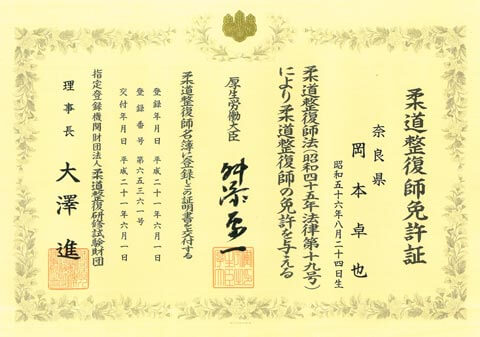 柔道整復師免許証
奈良県
岡本卓也
昭和五十六年八月二十四日生
柔道整復師法(昭和四十五年法律第十九号)
により柔道整復師の免許を与える
厚生労働大臣
舛添要一
柔道整復師名簿に登録しこの証明書を交付する
登録年月日 平成二十一年六月一日
登録番号 第六五三六一号
交付年月日 平成二十一年六月一日
指定登録機関財団法人柔道整復研修試験財団
理事長 大澤進